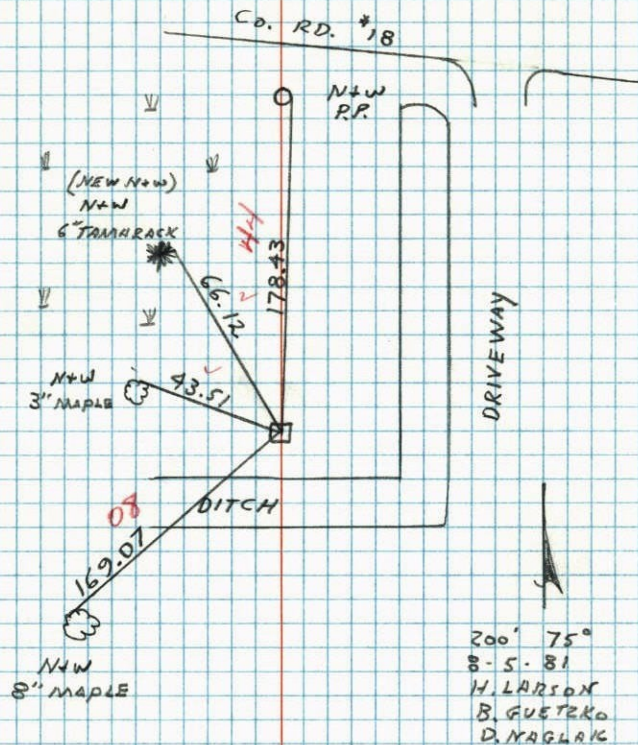 CO. RD. #18
N+W
P.P.
(NEW N+W)
N+W
6" TAMARACK
44
178.43
66.12
N+W
3" MAPLE
43.51
DRIVEWAY
DITCH
08
169.07
N+W
8" MAPLE
200' 75°
8-5-81
H. LARSON
B. GUETZKO
D. NAGLAK